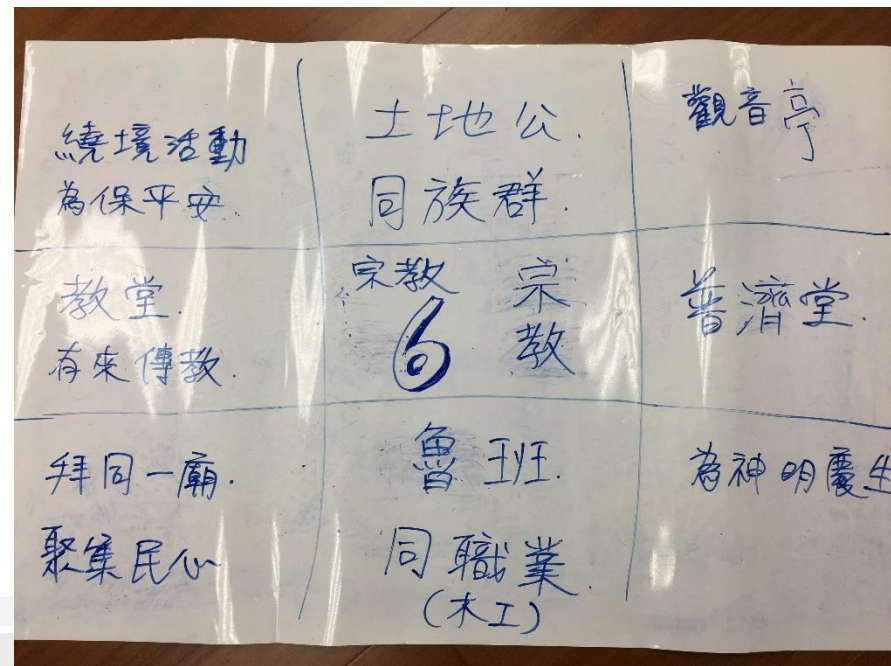 繞境活動
為保平安.
土地公.
同族群.
觀音亭
教堂.
有來傳教.
宗教
6
宗
教
普濟堂.
拜同一廟.
聚集民心
魯班.
同職業.
(木工)
為神明慶生